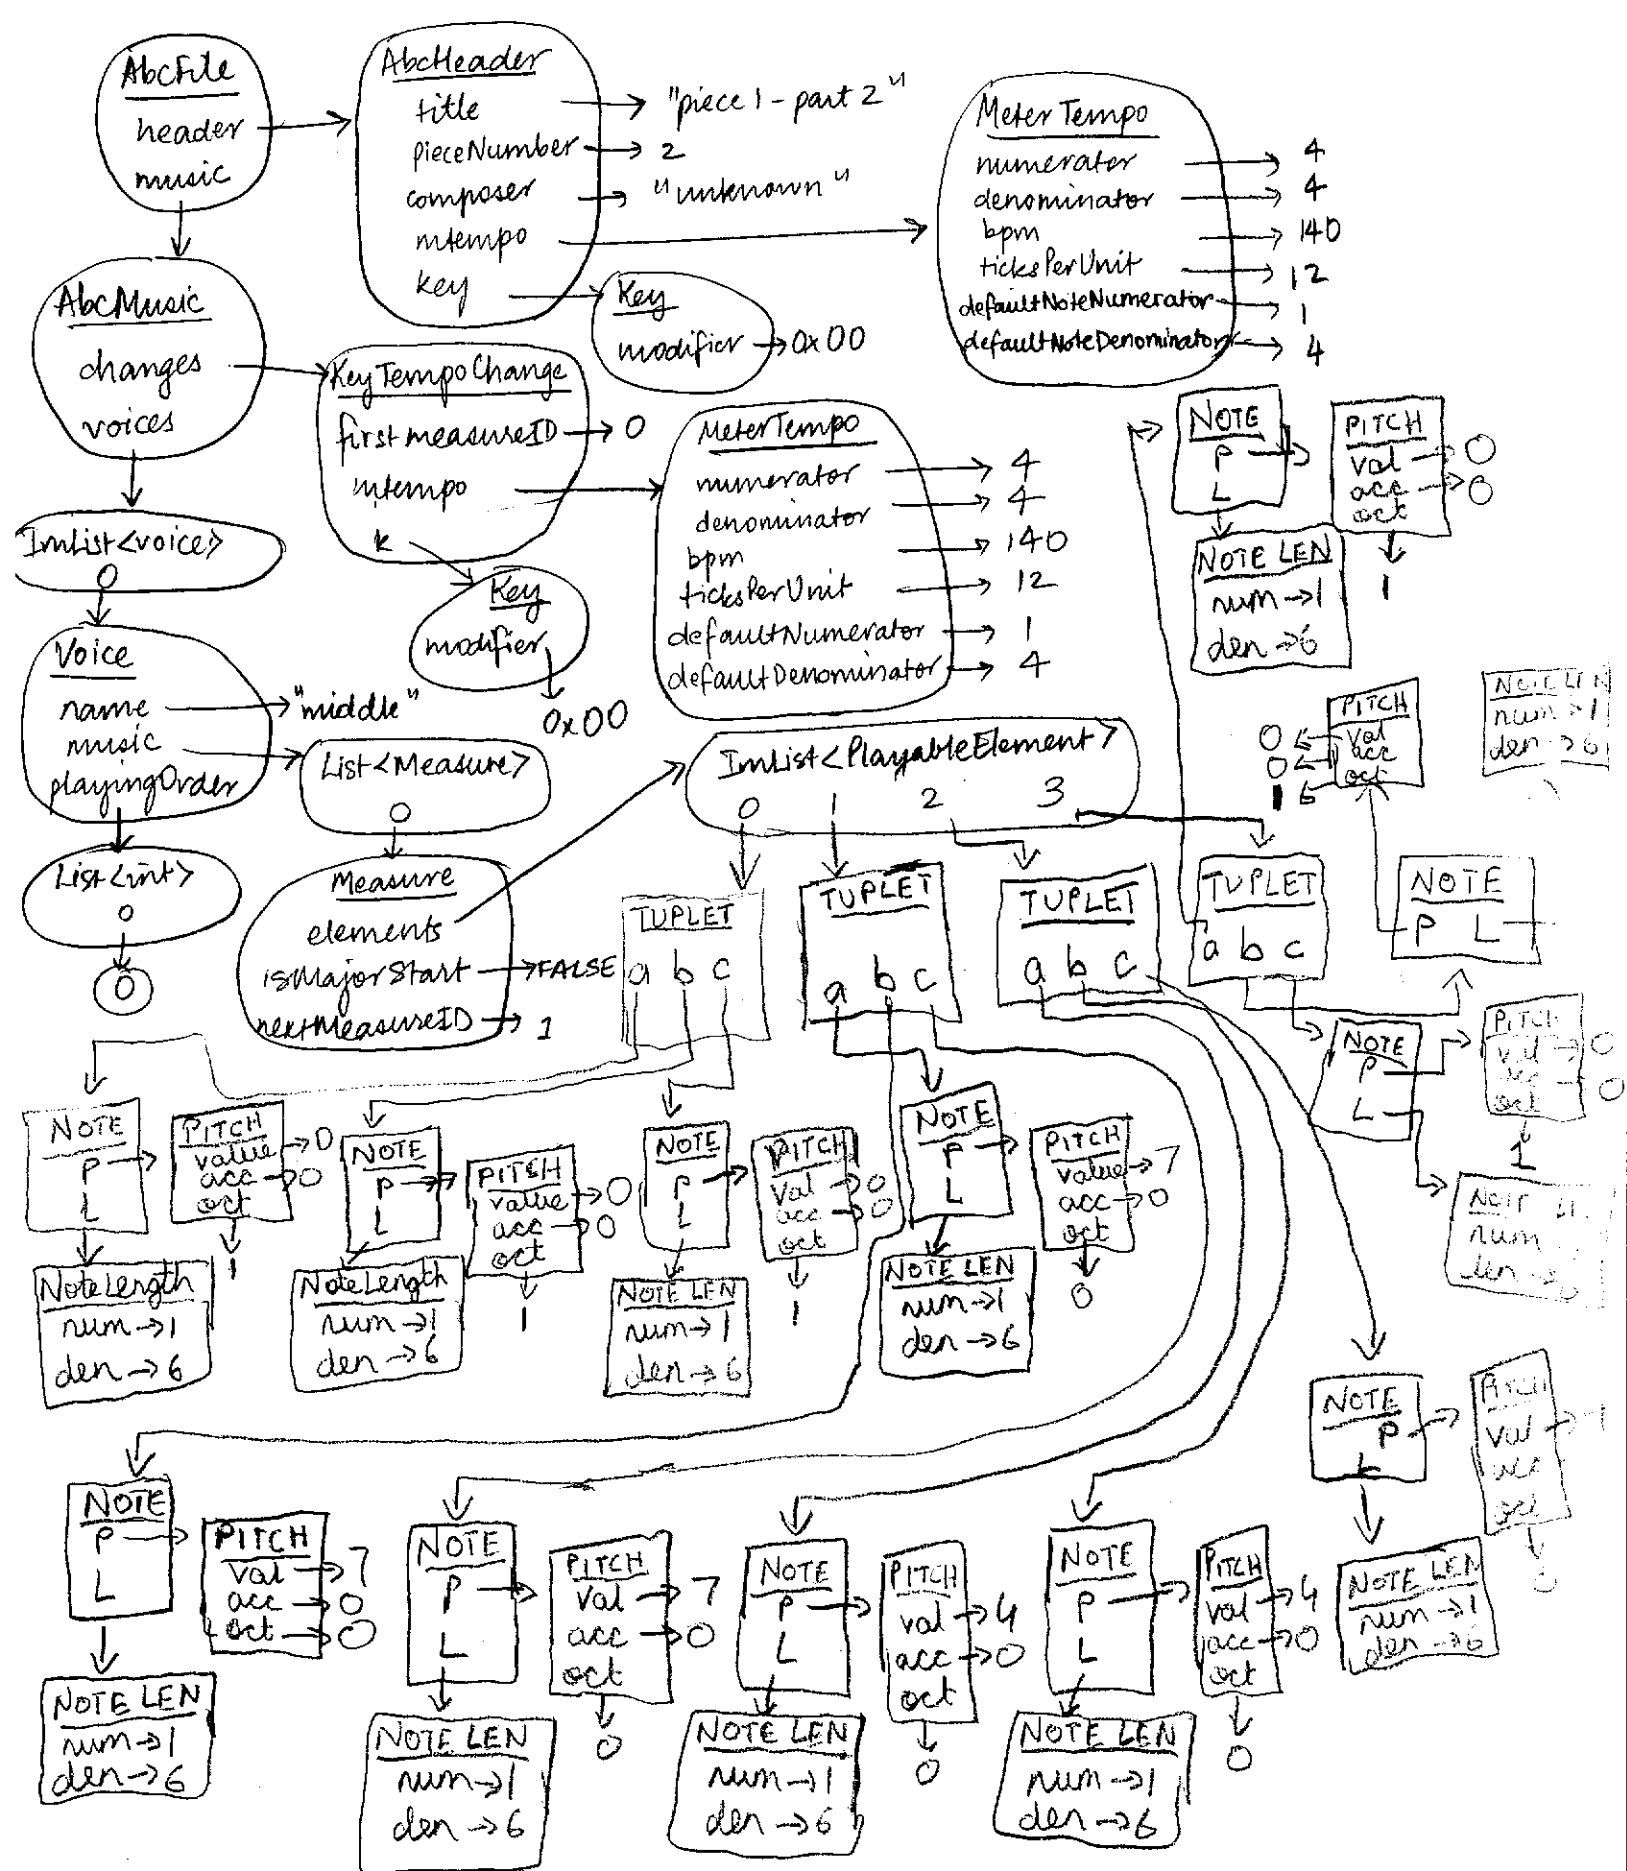 AbcFile
header
music
AbcHeader
title
"piece 1 - part 2"
pieceNumber
2
composer
"unknown"
mtempo
key
MeterTempo
numerator
4
denominator
4
bpm
140
ticksPerUnit
12
defaultNoteNumerator
1
defaultNoteDenominator
4
Key
modifier
0x00
AbcMusic
changes
voices
KeyTempoChange
firstmeasureID
0
mtempo
k
MeterTempo
numerator
4
denominator
4
bpm
140
ticksPerUnit
12
defaultNumerator
1
defaultDenominator
4
Key
modifier
0x00
ImList<voice>
0
Voice
name
"middle"
music
playingOrder
List<Measure>
0
List<int>
0
0
Measure
elements
isMajorStart
FALSE
nextMeasureID
1
ImList<PlayableElement>
0 1 2 3
TUPLET
a b c
TUPLET
a b c
TUPLET
a b c
TUPLET
a b c
NOTE
P
L
PITCH
val 0
acc 0
oct
1
NOTE LEN
num 1
den 6
PITCH
0 val
0 acc
1 oct
NOTE LEN
num 1
den 6
NOTE
P L
NOTE
P
L
PITCH
val 0
acc 0
oct
1
num
den
NOTE
P
L
PITCH
value 0
acc 0
oct
1
NoteLength
num 1
den 6
NOTE
P
L
PITCH
value 0
acc 0
oct
1
NoteLength
num 1
den 6
NOTE
P
L
PITCH
val 0
acc 0
oct
1
NOTE LEN
num 1
den 6
NOTE
P
L
PITCH
value 7
acc 0
oct
0
NOTE LEN
num 1
den 6
NOTE
P
L
PITCH
val 7
acc 0
oct 0
NOTE LEN
num 1
den 6
NOTE
P
L
PITCH
val 7
acc 0
oct
0
NOTE LEN
num 1
den 6
NOTE
P
L
PITCH
val 4
acc 0
oct
0
NOTE LEN
num 1
den 6
NOTE
P
L
PITCH
val 4
acc 0
oct
0
NOTE LEN
num 1
den 6
NOTE
P
L
PITCH
val
acc
oct
0
NOTE LEN
num 1
den 6